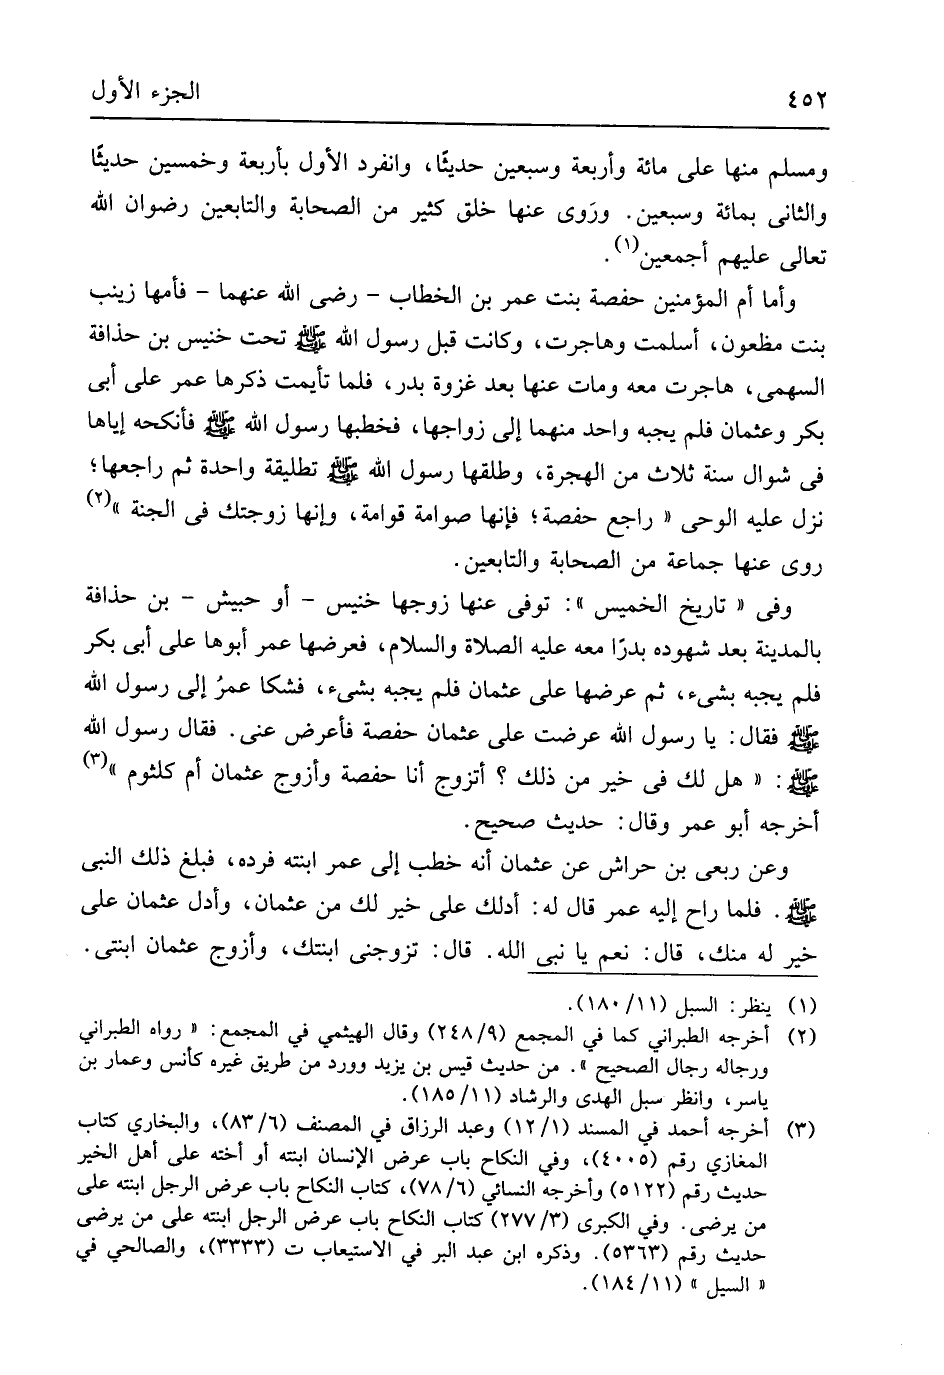 ٤٥٢ الجزء الأول
ومسلم منها على مائة وأربعة وسبعين حديثًا، وانفرد الأول بأربعة وخمسين حديثًا
والثانى بمائة وسبعين. ورَوى عنها خلق كثير من الصحابة والتابعين رضوان الله
تعالى عليهم أجمعين(١).
وأما أم المؤمنين حفصة بنت عمر بن الخطاب – رضى الله عنهما – فأمها زينب
بنت مظعون، أسلمت وهاجرت، وكانت قبل رسول الله ﷺ تحت خنيس بن حذافة
السهمى، هاجرت معه ومات عنها بعد غزوة بدر، فلما تأيمت ذكرها عمر على أبى
بكر وعثمان فلم يجبه واحد منهما إلى زواجها، فخطبها رسول الله ﷺ فأنكحه إياها
فى شوال سنة ثلاث من الهجرة، وطلقها رسول الله ﷺ تطليقة واحدة ثم راجعها؛
نزل عليه الوحى « راجع حفصة؛ فإنها صوامة قوامة، وإنها زوجتك فى الجنة »(٢)
روى عنها جماعة من الصحابة والتابعين.
وفى « تاريخ الخميس »: توفى عنها زوجها خنيس – أو حبيش – بن حذافة
بالمدينة بعد شهوده بدرًا معه عليه الصلاة والسلام، فعرضها عمر أبوها على أبى بكر
فلم يجبه بشىء، ثم عرضها على عثمان فلم يجبه بشىء، فشكا عمرُ إلى رسول الله
ﷺ فقال: يا رسول الله عرضت على عثمان حفصة فأعرض عنى. فقال رسول الله
ﷺ: « هل لك فى خير من ذلك ؟ أتزوج أنا حفصة وأزوج عثمان أم كلثوم »(٣)
أخرجه أبو عمر وقال: حديث صحيح.
وعن ربعى بن حراش عن عثمان أنه خطب إلى عمر ابنته فرده، فبلغ ذلك النبى
ﷺ. فلما راح إليه عمر قال له: أدلك على خير لك من عثمان، وأدل عثمان على
خير له منك، قال: نعم يا نبى الله. قال: تزوجنى ابنتك، وأزوج عثمان ابنتى.
(١) ينظر: السبل (١٨٠/١١).
(٢) أخرجه الطبراني كما في المجمع (٢٤٨/٩) وقال الهيثمي في المجمع: « رواه الطبراني
ورجاله رجال الصحيح ». من حديث قيس بن يزيد وورد من طريق غيره كأنس وعمار بن
ياسر، وانظر سبل الهدى والرشاد (١٨٥/١١).
(٣) أخرجه أحمد في المسند (١٢/١) وعبد الرزاق في المصنف (٨٣/٦)، والبخاري كتاب
المغازي رقم (٤٠٠٥)، وفي النكاح باب عرض الإنسان ابنته أو أخته على أهل الخير
حديث رقم (٥١٢٢) وأخرجه النسائي (٧٨/٦)، كتاب النكاح باب عرض الرجل ابنته على
من يرضى. وفي الكبرى (٢٧٧/٣) كتاب النكاح باب عرض الرجل ابنته على من يرضى
حديث رقم (٥٣٦٣). وذكره ابن عبد البر في الاستيعاب ت (٣٣٣٣)، والصالحي في
« السبل » (١٨٤/١١).